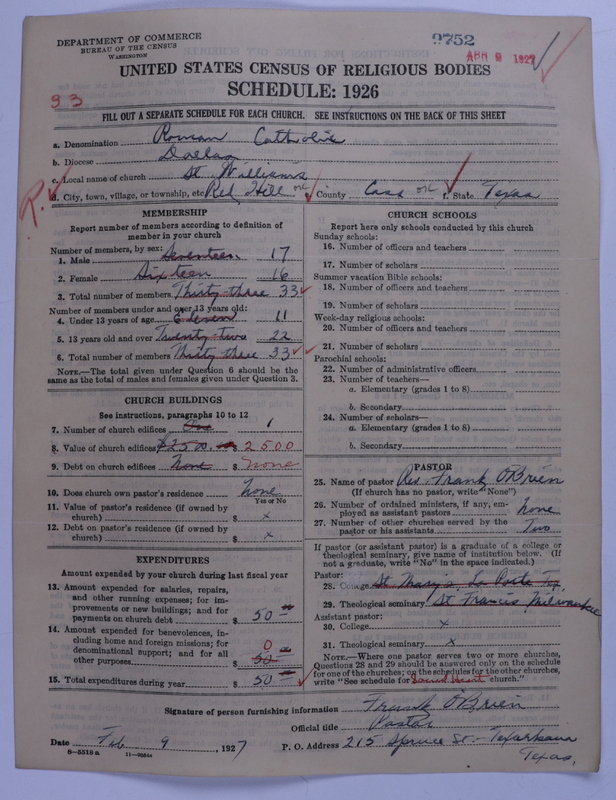 9752
APR 9 1927
DEPARTMENT OF COMMERCE
BUREAU OF THE CENSUS
WASHINGTON
UNITED STATES CENSUS OF RELIGIOUS BODIES
SCHEDULE: 1926
93
FILL OUT A SEPARATE SCHEDULE FOR EACH CHURCH. SEE INSTRUCTIONS ON THE BACK OF THIS SHEET
a. Denomination Roman Catholic
b. Diocese Dallas
c. Local name of church St Williams
R.
d. City, town, village, or township, etc. Red Hill OK County Cass OK f. State Texas
MEMBERSHIP
Report number of members according to definition of
member in your church
Number of members, by sex:
1. Male Seventeen 17
2. Female Sixteen 16
3. Total number of members Thirty three 33
Number of members under and over 13 years old:
4. Under 13 years of age Eleven 11
5. 13 years old and over Twenty two 22
6. Total number of members Thirty three 33
NOTE.—The total given under Question 6 should be
same as the total of males and females given under Question 3.
CHURCH BUILDINGS
See instructions, paragraphs 10 to 12
7. Number of church edifices One 1
8. Value of church edifices $2500.00 $ 2500
9. Debt on church edifices None $ none
10. Does church own pastor's residence None
Yes or No
11. Value of pastor's residence (if owned by
church) $ x
12. Debt on pastor's residence (if owned by
church) $ x
EXPENDITURES
Amount expended by your church during last fiscal year
13. Amount expended for salaries, repairs,
and other running expenses; for im-
provements or new buildings; and for
payments on church debt $ 50 00
14. Amount expended for benevolences, in-
cluding home and foreign missions; for
denominational support; and for all
other purposes $ 50 00 0
15. Total expenditures during year $ 50 00
CHURCH SCHOOLS
Report here only schools conducted by this church
Sunday schools:
16. Number of officers and teachers
17. Number of scholars
Summer vacation Bible schools:
18. Number of officers and teachers
19. Number of scholars
Week-day religious schools:
20. Number of officers and teachers
21. Number of scholars
Parochial schools:
22. Number of administrative officers
23. Number of teachers—
a. Elementary (grades 1 to 8)
b. Secondary
24. Number of scholars—
a. Elementary (grades 1 to 8)
b. Secondary
PASTOR
25. Name of pastor Rev. Frank O'Brien
(If church has no pastor, write "None")
26. Number of ordained ministers, if any, em-
ployed as assistant pastors None
27. Number of other churches served by the
pastor or his assistants Two
If pastor (or assistant pastor) is a graduate of a college or
theological seminary, give name of institution below. (If
not a graduate, write "No" in the space indicated.)
Pastor:
28. College St Mary's, La Porte Tx,
29. Theological seminary St Francis, Milwaukee
Assistant pastor:
30. College x
31. Theological seminary x
NOTE.—Where one pastor serves two or more churches,
Questions 28 and 29 should be answered only on the schedule
for one of the churches; on the schedules for the other churches,
write "See schedule for Sacred Heart church."
Signature of person furnishing information Frank O'Brien
Official title Pastor
Date Feb 9, 1927 P. O. Address 215 Spruce St.- Texarkana
Texas,
8-5518a 11-9684a